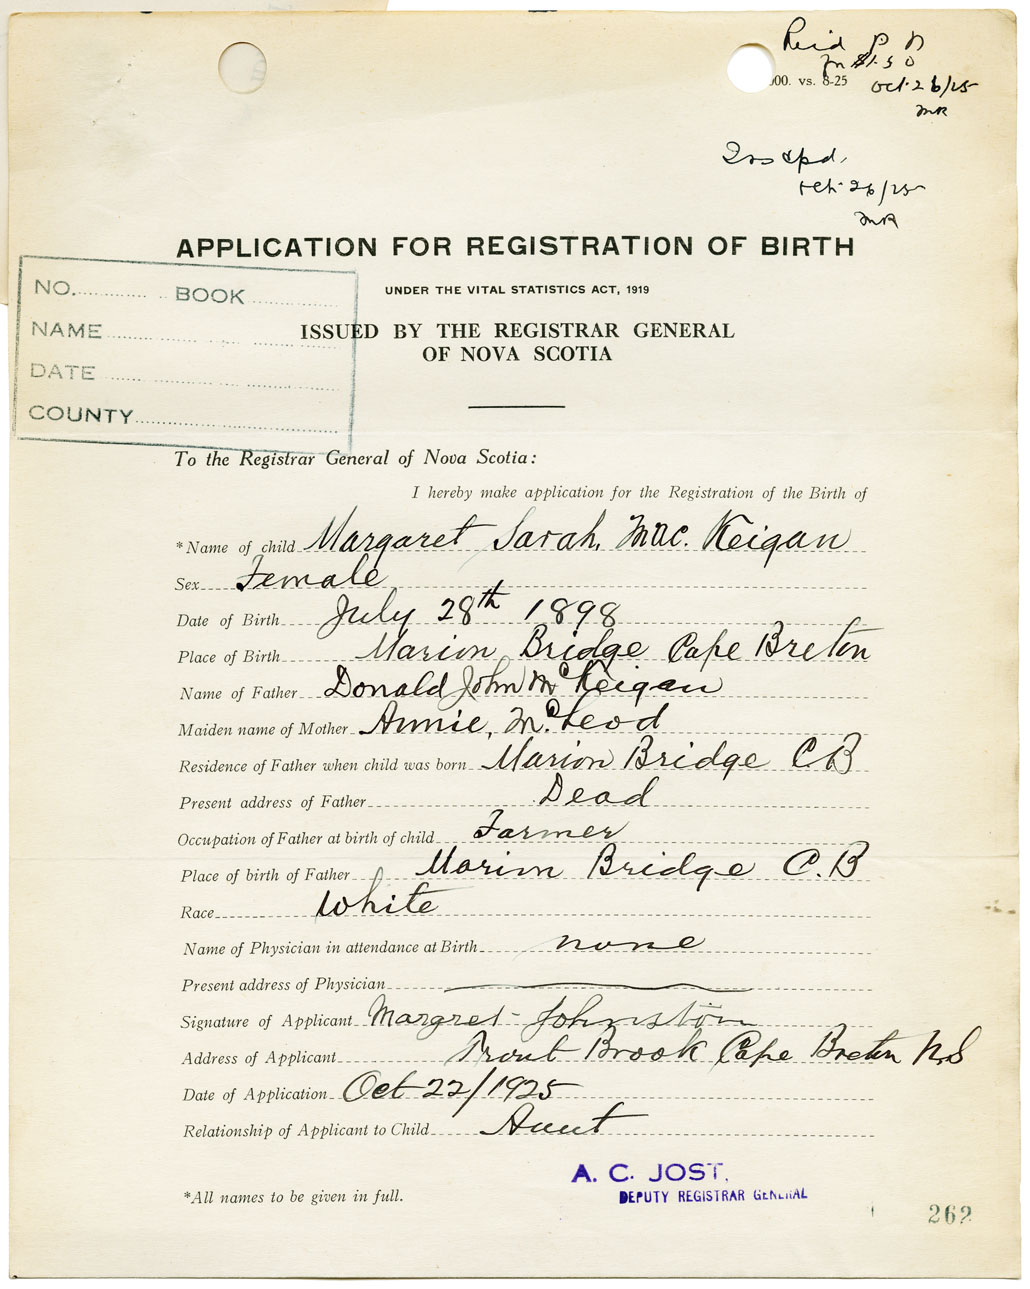 P N
$1.50
000. vs. 8-25
Oct. 26/25
MR
Oct. 26/25
MR
APPLICATION FOR REGISTRATION OF BIRTH
UNDER THE VITAL STATISTICS ACT, 1919
ISSUED BY THE REGISTRAR GENERAL
OF NOVA SCOTIA
NO. BOOK
NAME
DATE
COUNTY
To the Registrar General of Nova Scotia:
I hereby make application for the Registration of the Birth of
*Name of child Margaret Sarah, Mac. Keigan
Sex Female
Date of Birth July 28th 1898
Place of Birth Marion Bridge Cape Breton
Name of Father Donald John McKeigan
Maiden name of Mother Annie, McLeod
Residence of Father when child was born Marion Bridge C B
Present address of Father Dead
Occupation of Father at birth of child Farmer
Place of birth of Father Marion Bridge C.B
Race White
Name of Physician in attendance at Birth none
Present address of Physician
Signature of Applicant Margret Johnston
Address of Applicant Trout Brook Cape Breton N.S
Date of Application Oct 22/1925
Relationship of Applicant to Child Aunt
A. C. JOST,
DEPUTY REGISTRAR GENERAL
*All names to be given in full.
262